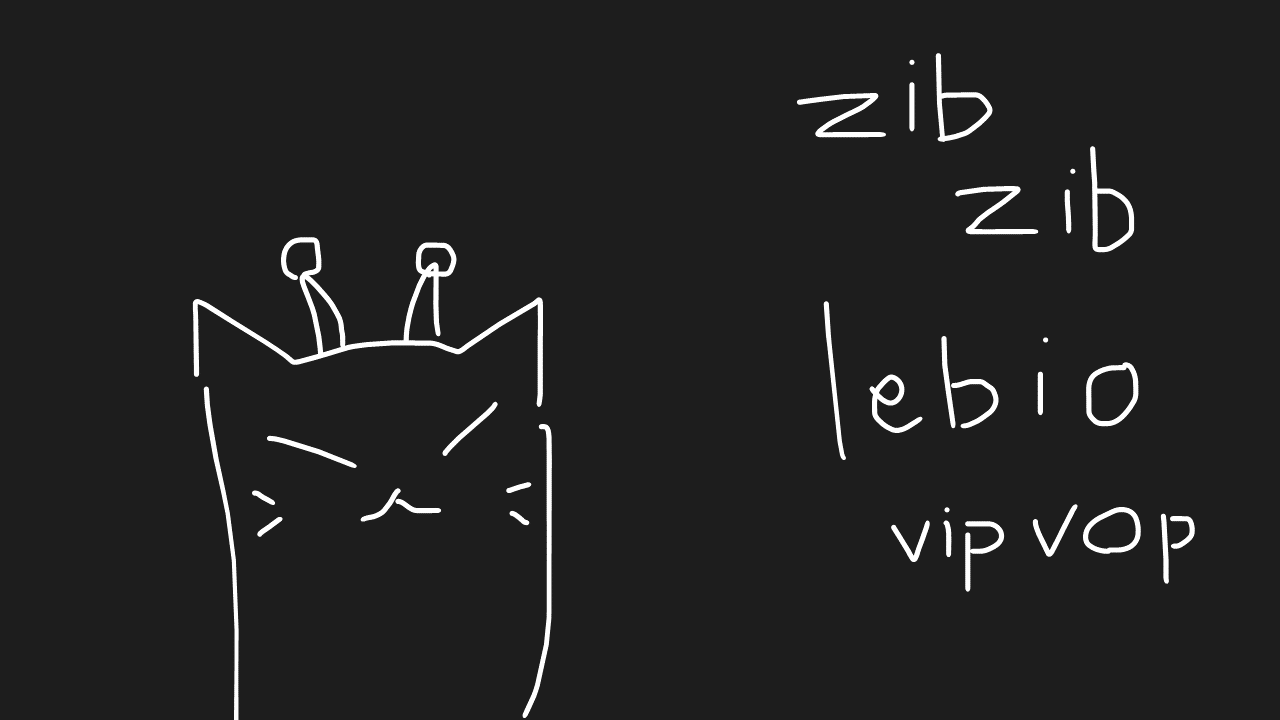 zib
zib
lebio
vipvop